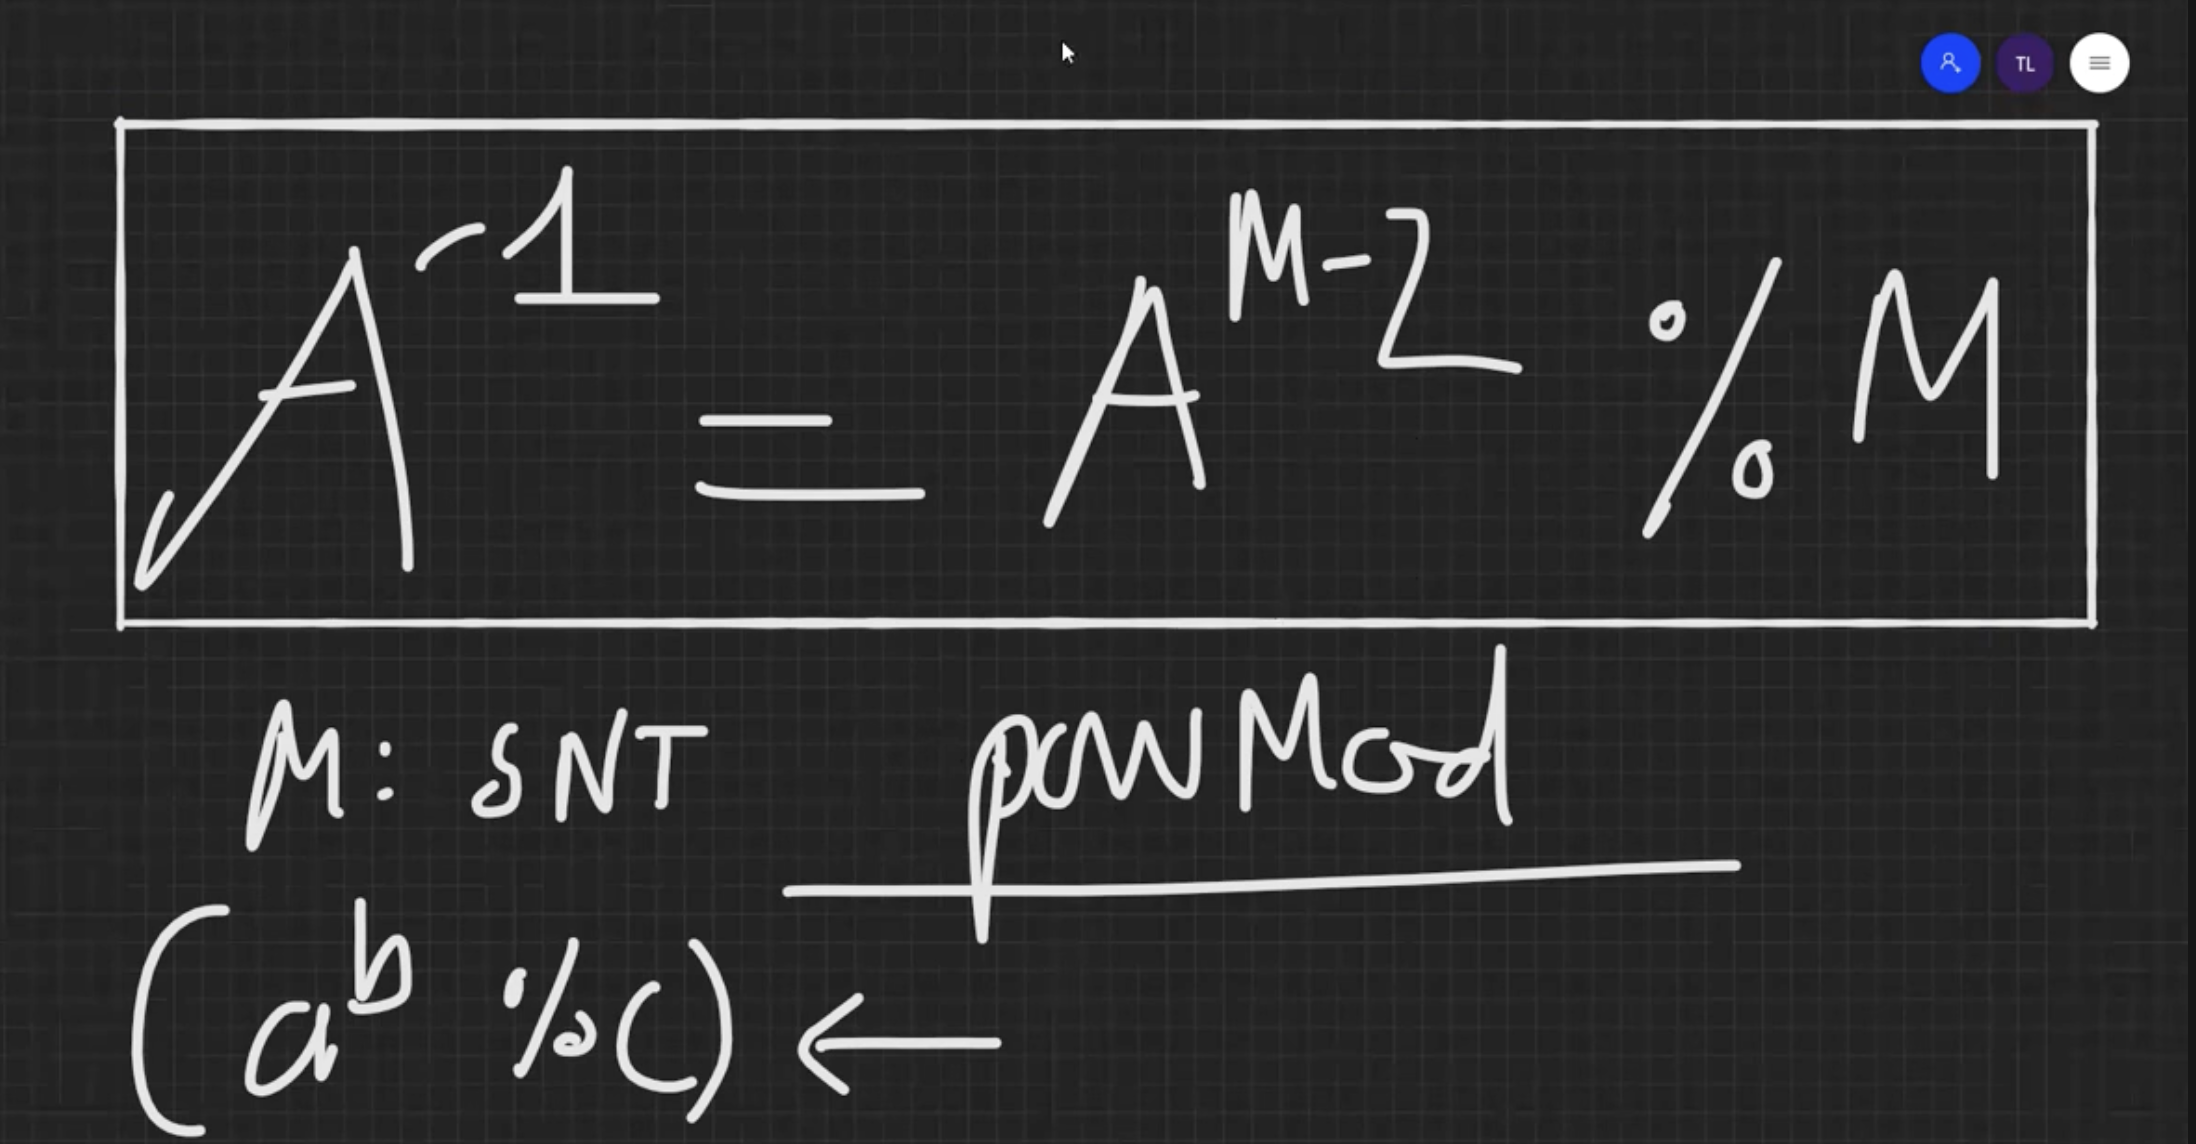 TL
A⁻¹ = A^(M-2) % M
M: SNT powMod
(a^b % C) ←